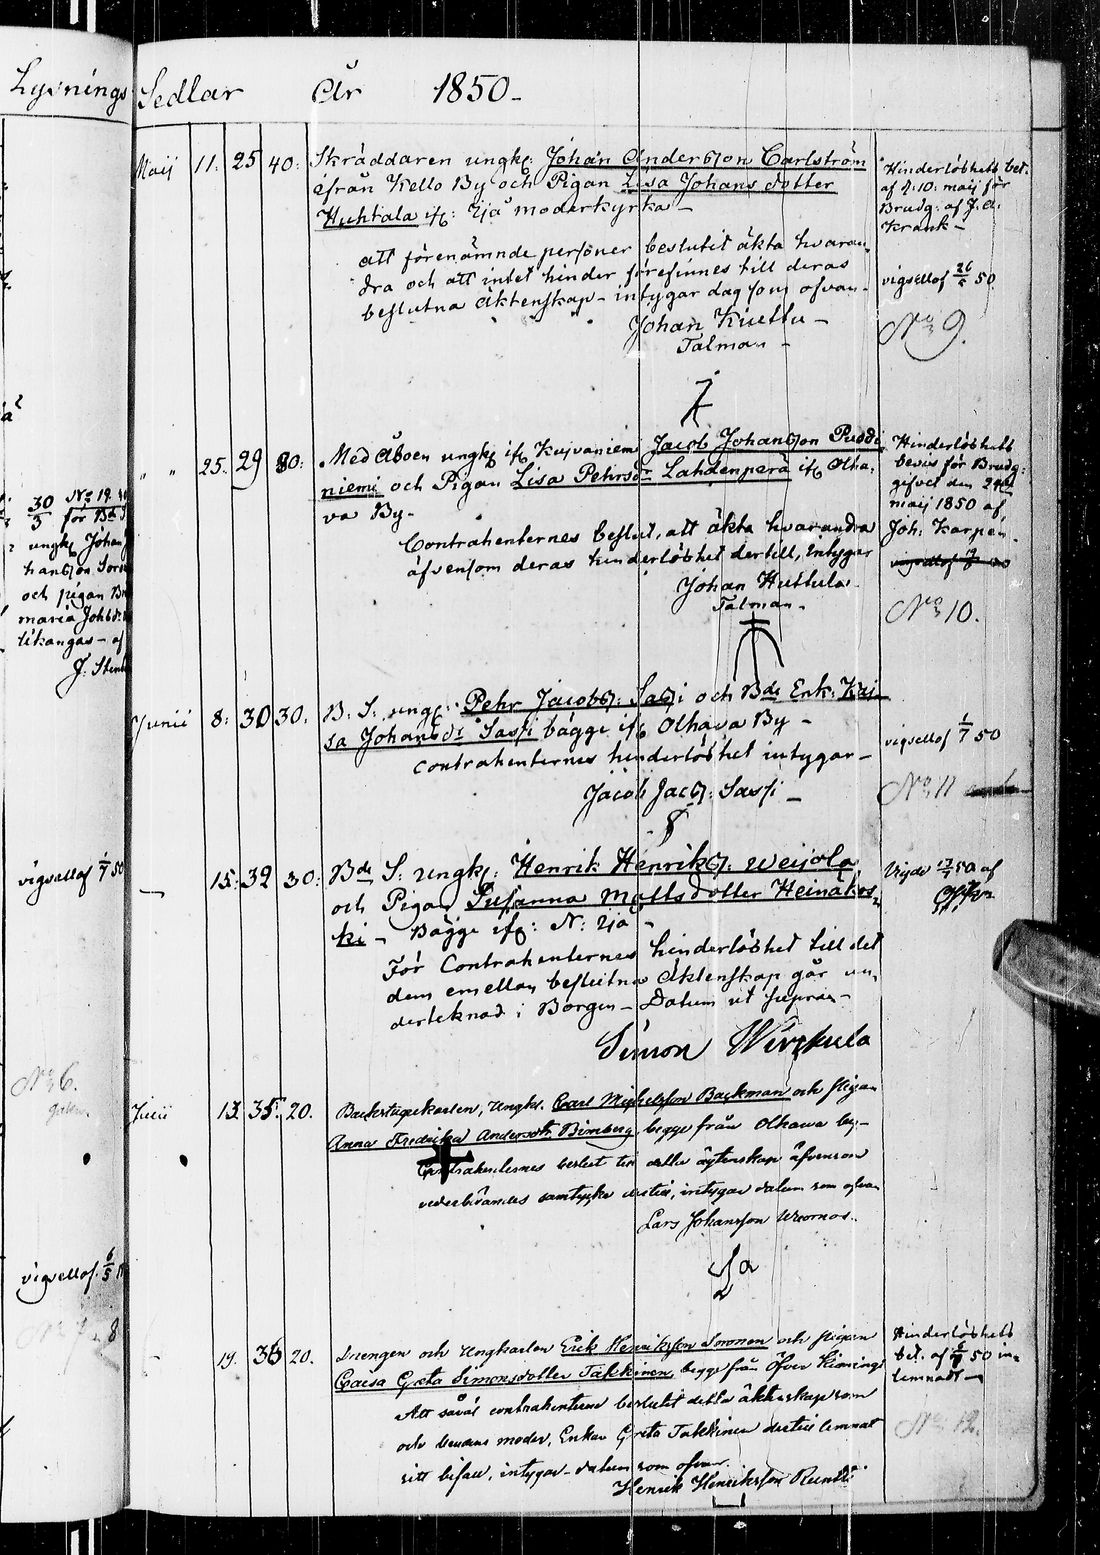 Lysnings Sedlar År 1850-
Maij 11: 25 40: Skräddaren ungk: Johan Andersson Carlström
ifrån Kello By och Pigan Lisa Johans dotter
Huhtala if: Ijå moderkyrka-
att förenämnde personer beslutit äkta hvaran-
dra och att intet hinder förefinnes till deras
beslutna äktenskap- intygar dag som ofvan-
Johan Kuettu-
Talman-
Hinderlöshets bet.
af d. 10: maij för
Brudg: af J. A:
Krank-
vigsellof 26/5 50
No 9.
" " 25. 29 30: Med Åboen ungk if Kujvaniemi Jacob Johansson Puddi
niemi och Pigan Lisa Pehrsdr Lahdenperä if Olha-
va By-
Contrahenternes beslut, att äkta hvarandra
äfvensom deras hinderlöshet dertill, intygar
Johan Huttula-
Talman-
Hinderlöshets
bevis för Brudg:
gifvet den 24de
maij 1850 af
Joh: Karpén-
No 10.
30/3 No 19
för
ungk Johan
och pigan
maria Johsdr
likangas- af
J: Sten
Junii 8: 30 30: B: S: ungk: Pehr Jacobss: Sassi och Bde Enk: Kaj-
sa Johansdr Sassi bägge if Olhava By-
contrahenternes hinderlöshet intygar-
Jacob Jacss: Sassi-
vigsellof 1/7 50
No 11
vigsellof 1/7 50
- 15: 32 30: Bde S: ungk: Henrik Henrikss: Weijola
och Pigan Susanna Mattsdotter Heinäkos-
ki- Bägge if: N: Ijå-
För Contrahenternes hinderlöshet till det
dem emellan beslutna Äktenskap går un-
derteknad i Borgen- Datum ut supra-
Simon Wirkula
Vigde 50 af
No 6.
Julii 13. 35. 20. Backstugukarlen, Ungk. Carl Michelsson Backman och Pigan
Anna Fredrika Andersdtr Bimberg, begge från Olhawa by-
Contrahenternes beslut till detta äktenskap äfvensom
vederbörandes samtycke dertill, intygar datum som ofvan
Lars Johansson Wuornos.
vigsellof. 6/5
19. 36 20. Drengen och Ungkarlen Erik Henriksson Soronen och Pigan
Caisa Greta Simonsdotter Takkinen begge från Öfver Kiimingi
Att såväl contrahenterne beslutit detta äktenskap som
och hennes moder, Enkan Greta Takkinen dertill lemnat
sitt bifall, intygar- datum som ofvan.
Henrik Henriksson Rundti
Hinderlöshets
bet. af 50 in-
lemnadt-
No 12.